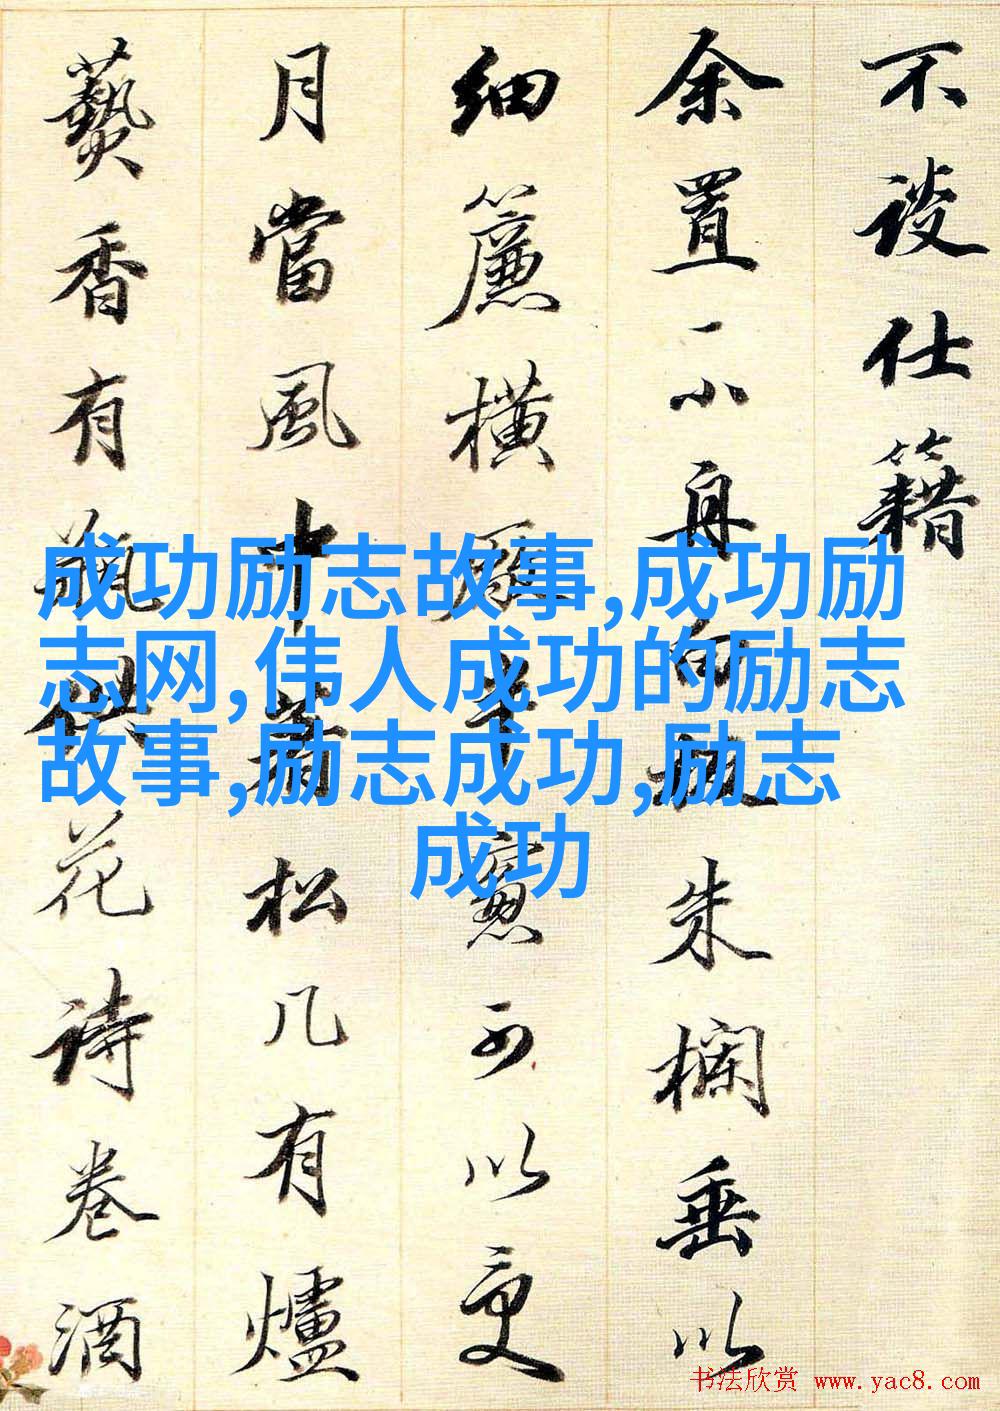 不談仕籍
余置一小舟白板朱欄垂以
細簾橫半窻可以更
月當風中有松几有爐
爇香有瓶供花詩卷酒
成功励志故事,成功励
志网,伟人成功的励志
故事,励志成功,励志
成功
书法欣赏 www.yac8.com